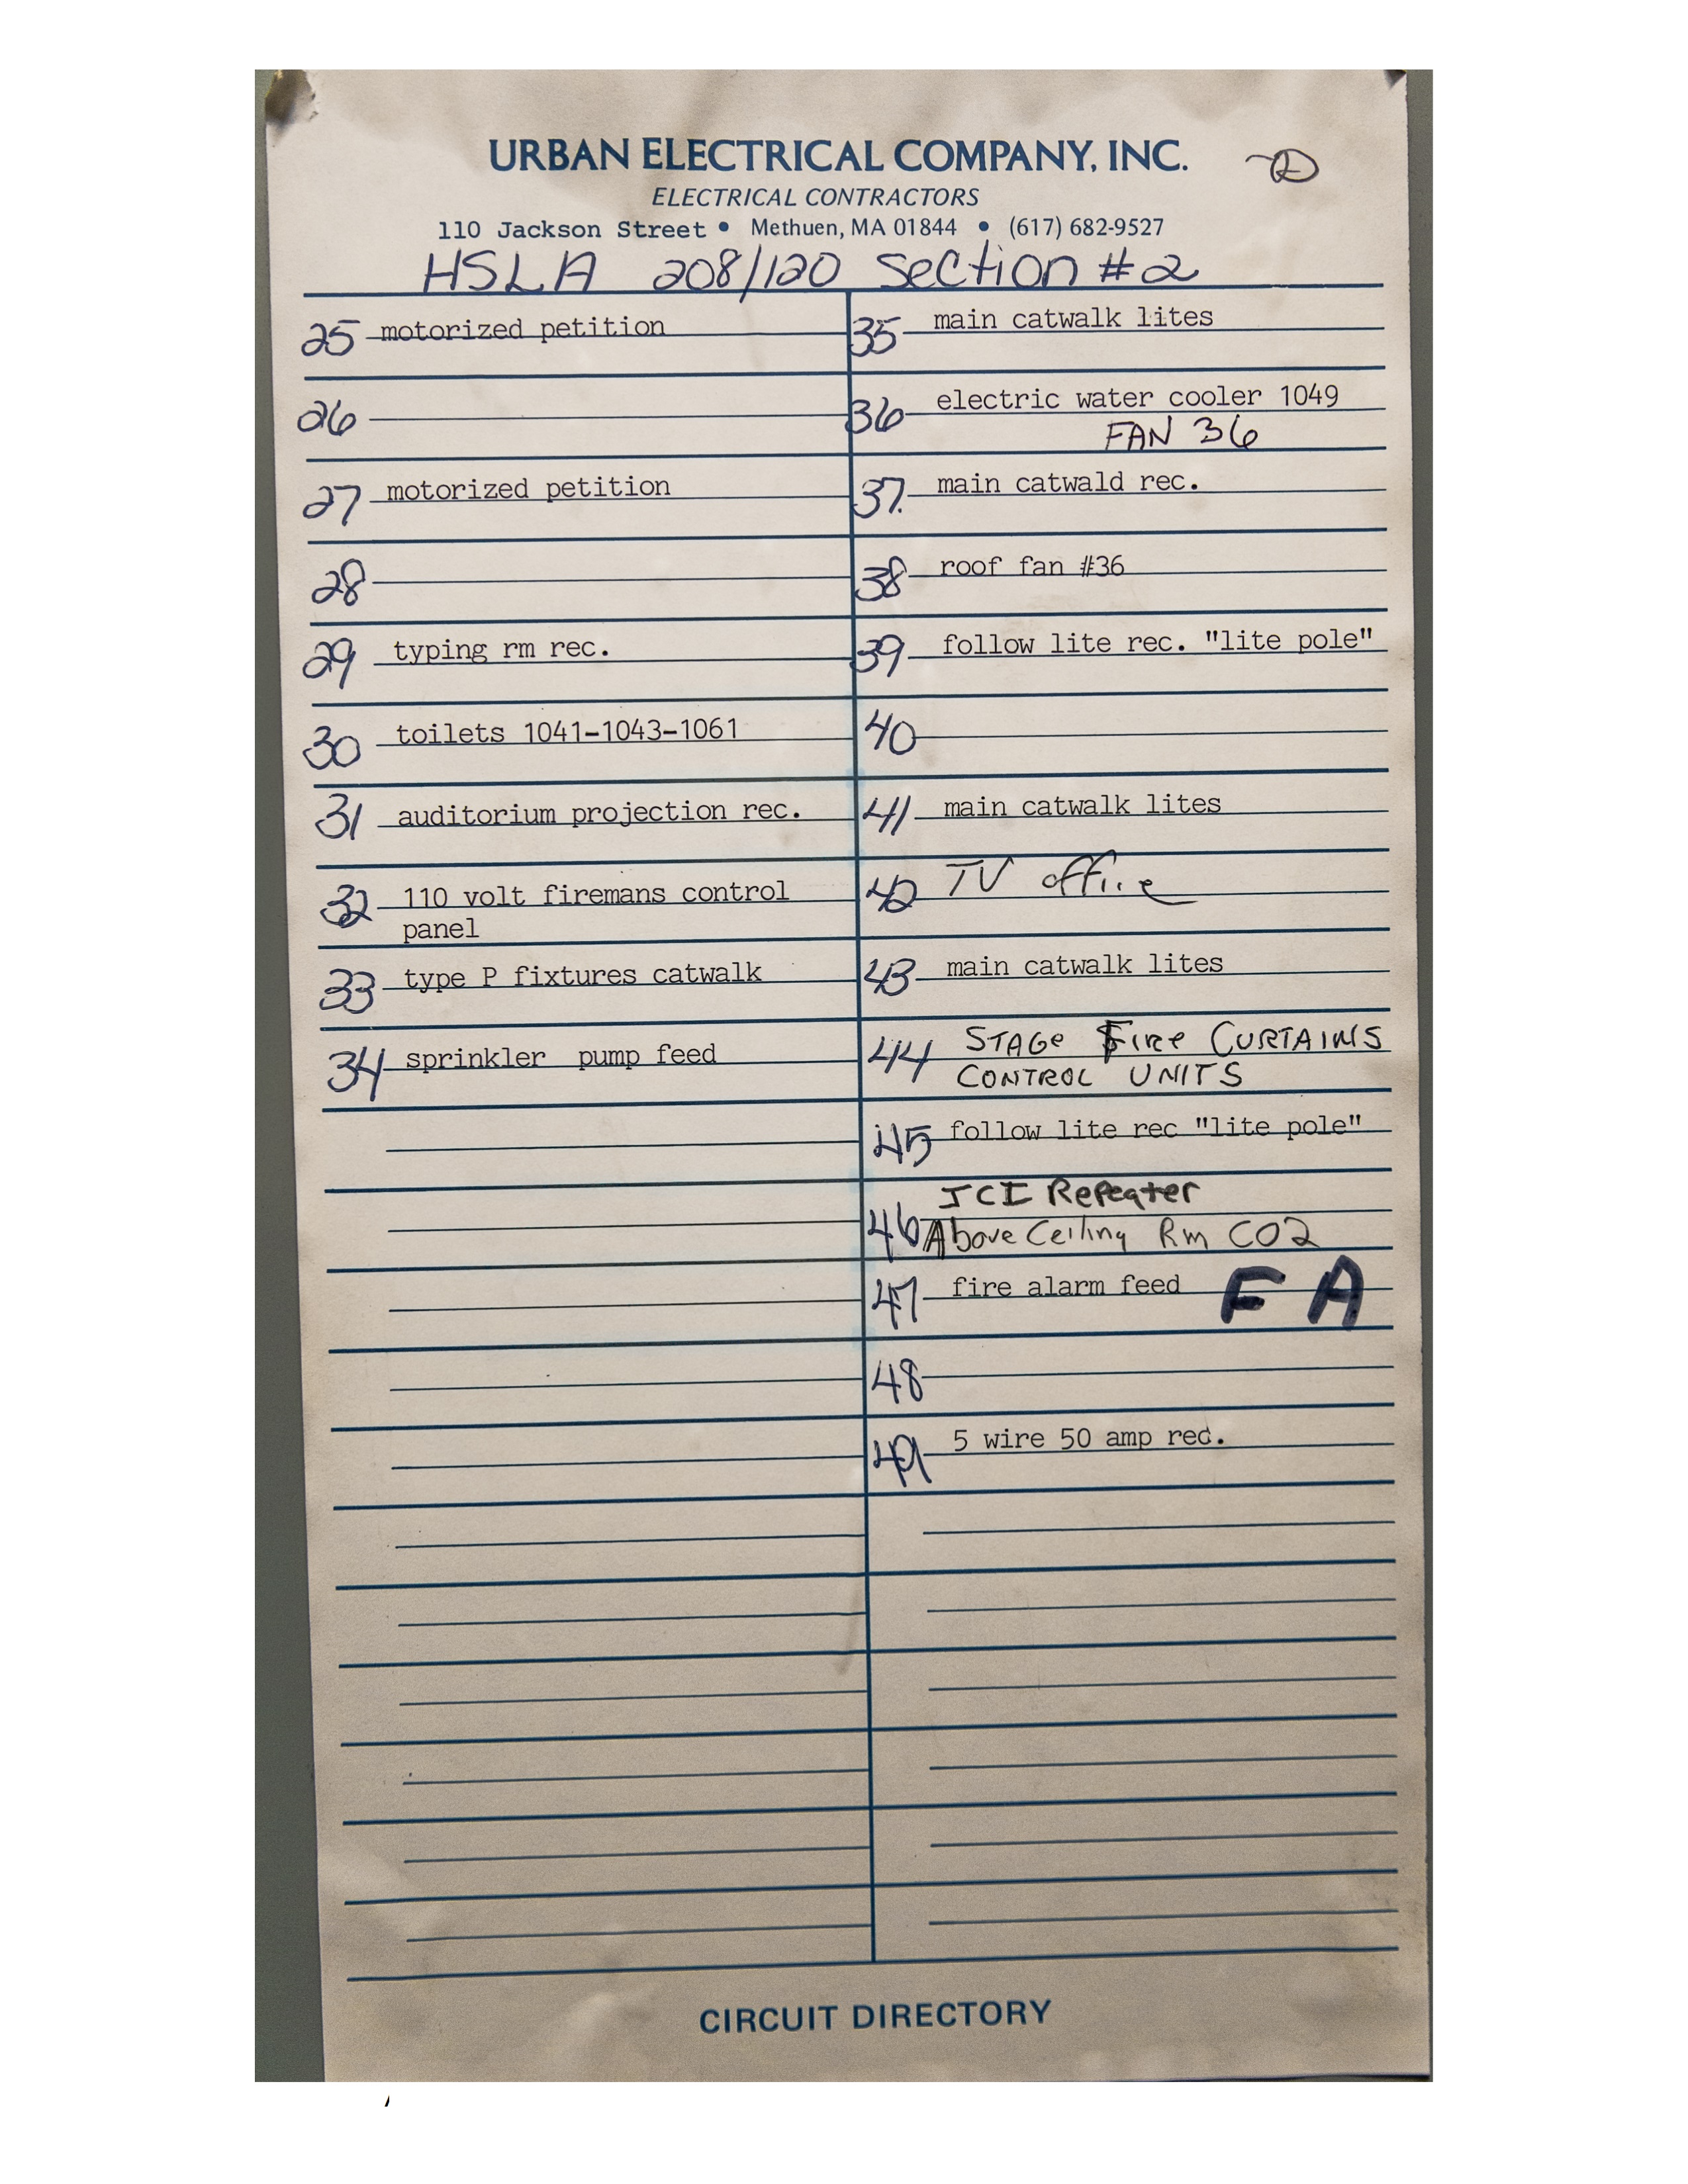 URBAN ELECTRICAL COMPANY, INC.
ELECTRICAL CONTRACTORS
110 Jackson Street • Methuen, MA 01844 • (617) 682-9527
HSLA 208/120 Section #2
25 motorized petition
26
27 motorized petition
28
29 typing rm rec.
30 toilets 1041-1043-1061
31 auditorium projection rec.
32 110 volt firemans control
panel
33 type P fixtures catwalk
34 sprinkler pump feed
35 main catwalk lites
36 electric water cooler 1049
FAN 36
37. main catwald rec.
38 roof fan #36
39 follow lite rec. "lite pole"
40
41 main catwalk lites
42 TV office
43 main catwalk lites
44 STAGE FIRE CURTAINS
CONTROL UNITS
45 follow lite rec "lite pole"
JCI Repeater
46 Above Ceiling Rm CO2
47 fire alarm feed FA
48
49 5 wire 50 amp rec.
CIRCUIT DIRECTORY